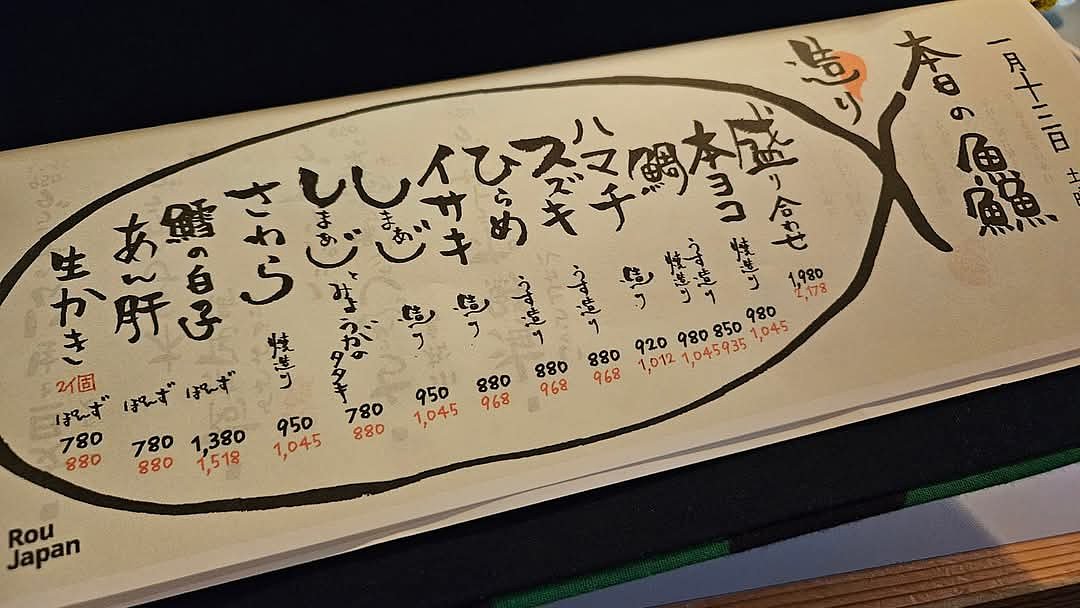 一月十三日 土
本日の鱻
造り
盛り合わせ 1,980 2,178
本ヨコ 焼造り 980 1,045
鯛 うす造り 850 935
焼造り 980 1,045
ハマチ 造り 920 1,012
スズキ うす造り 880 968
ひらめ うす造り 880 968
イサキ 造り 880 968
しまあじ 造り 950 1,045
しまあじとみょうがのタタキ 780 880
さわら 焼造り 950 1,045
鱈の白子 ぽんず 1,380 1,518
あん肝 ぽんず 780 880
生かき 2個 ぽんず 780 880
Rou
Japan